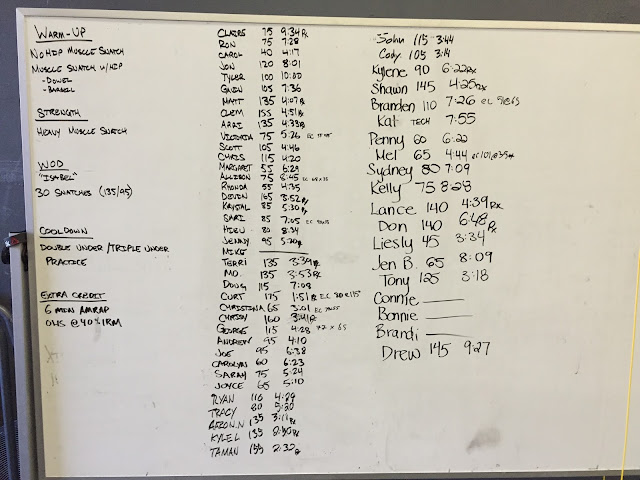 WARM-UP
NO HIP MUSCLE SNATCH
MUSCLE SNATCH W/HIP
-DOWEL
-BARBELL
STRENGTH
HEAVY MUSCLE SNATCH
WOD
"ISABEL"
30 SNATCHES (135/95)
COOLDOWN
DOUBLE UNDER/TRIPLE UNDER
PRACTICE
EXTRA CREDIT
6 MIN AMRAP
OHS @ 40% 1RM
CLAIRE 75 9:34
RON 75 7:28
CAROL 40 4:17
JON 120 8:01
TYLER 100 10:00
GWEN 105 7:36
MATT 135 4:07 Rx
CLEM 155 4:51 Rx
135 4:33 Rx
VICTORIA 75 5:26 EC
SCOTT 105 4:46
CHRIS 115 4:20
MARGARET 55 6:29
ALLISON 75 8:45 EC
RHONDA 55 4:35
DEVIN 165 3:52 Rx
KRYSTAL 85 5:30
SARI 85 7:05 EC
HIEU 80 8:34
JENNY 95 5:20 Rx
MIKE
TERRI 135 3:39 Rx
MO. 135 3:53 Rx
DOUG 115 7:08
CURT 175 1:51 Rx EC 30 @ 115
CHRISTINA 65 3:01 EC
160 3:41 Rx
GEORGE 115 4:28 72 x 65
ANDREW 95 4:10
JOE 95 6:38
CAROLYN 60 6:23
SARAH 75 5:24
JOYCE 65 5:10
RYAN 110 4:29
TRACY 80 5:30
AARON.N 135 3:11 Rx
KYLE L 135 2:50 Rx
TAMAN 155 2:32
John 115 3:44
Cody 105 3:14
Kylene 90 6:22 Rx
Shawn 145 4:25 Rx
Branden 110 7:26 EC
Kat TECH 7:55
Penny 60 6:22
Mel 65 4:44 EC
Sydney 80 7:09
Kelly 75 8:28
Lance 140 4:39 Rx
Don 140 6:48 Rx
Liesly 45 3:34
Jen B. 65 8:09
Tony 125 3:18
Connie
Bonnie
Brandi
Drew 145 9:27